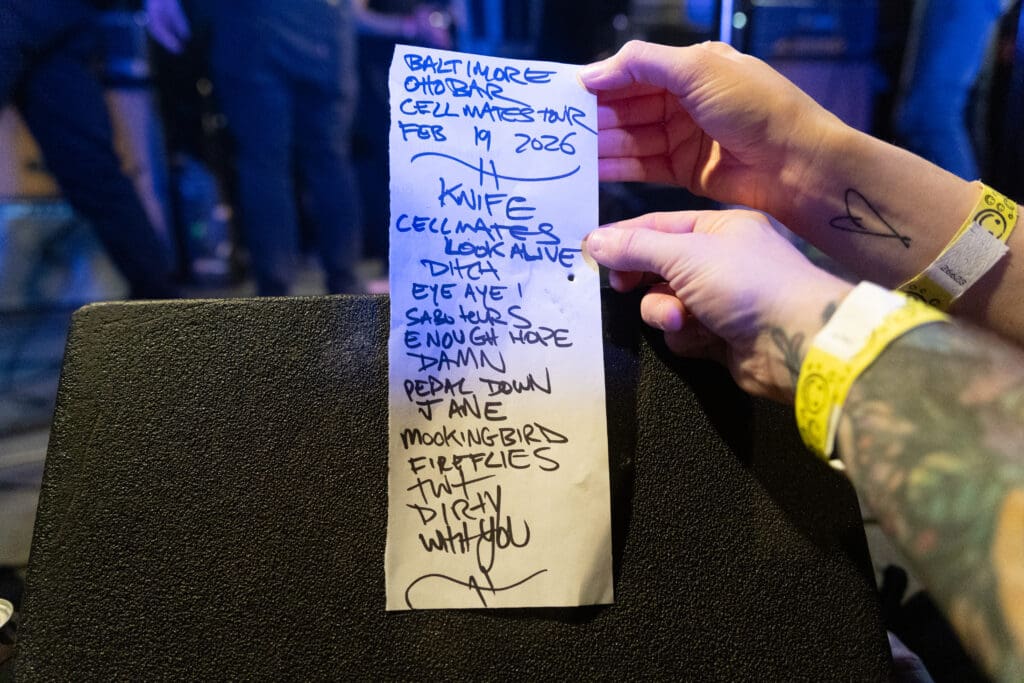 BALTIMORE
OTTOBAR
CELLMATES TOUR
FEB 19 2026
KNIFE
CELLMATES
LOOK ALIVE
DITCH
EYE AYE I
SABOTEURS
ENOUGH HOPE
DAMN
PEDAL DOWN
JANE
MOCKINGBIRD
FIREFLIES
TWT
DIRTY
WITH YOU